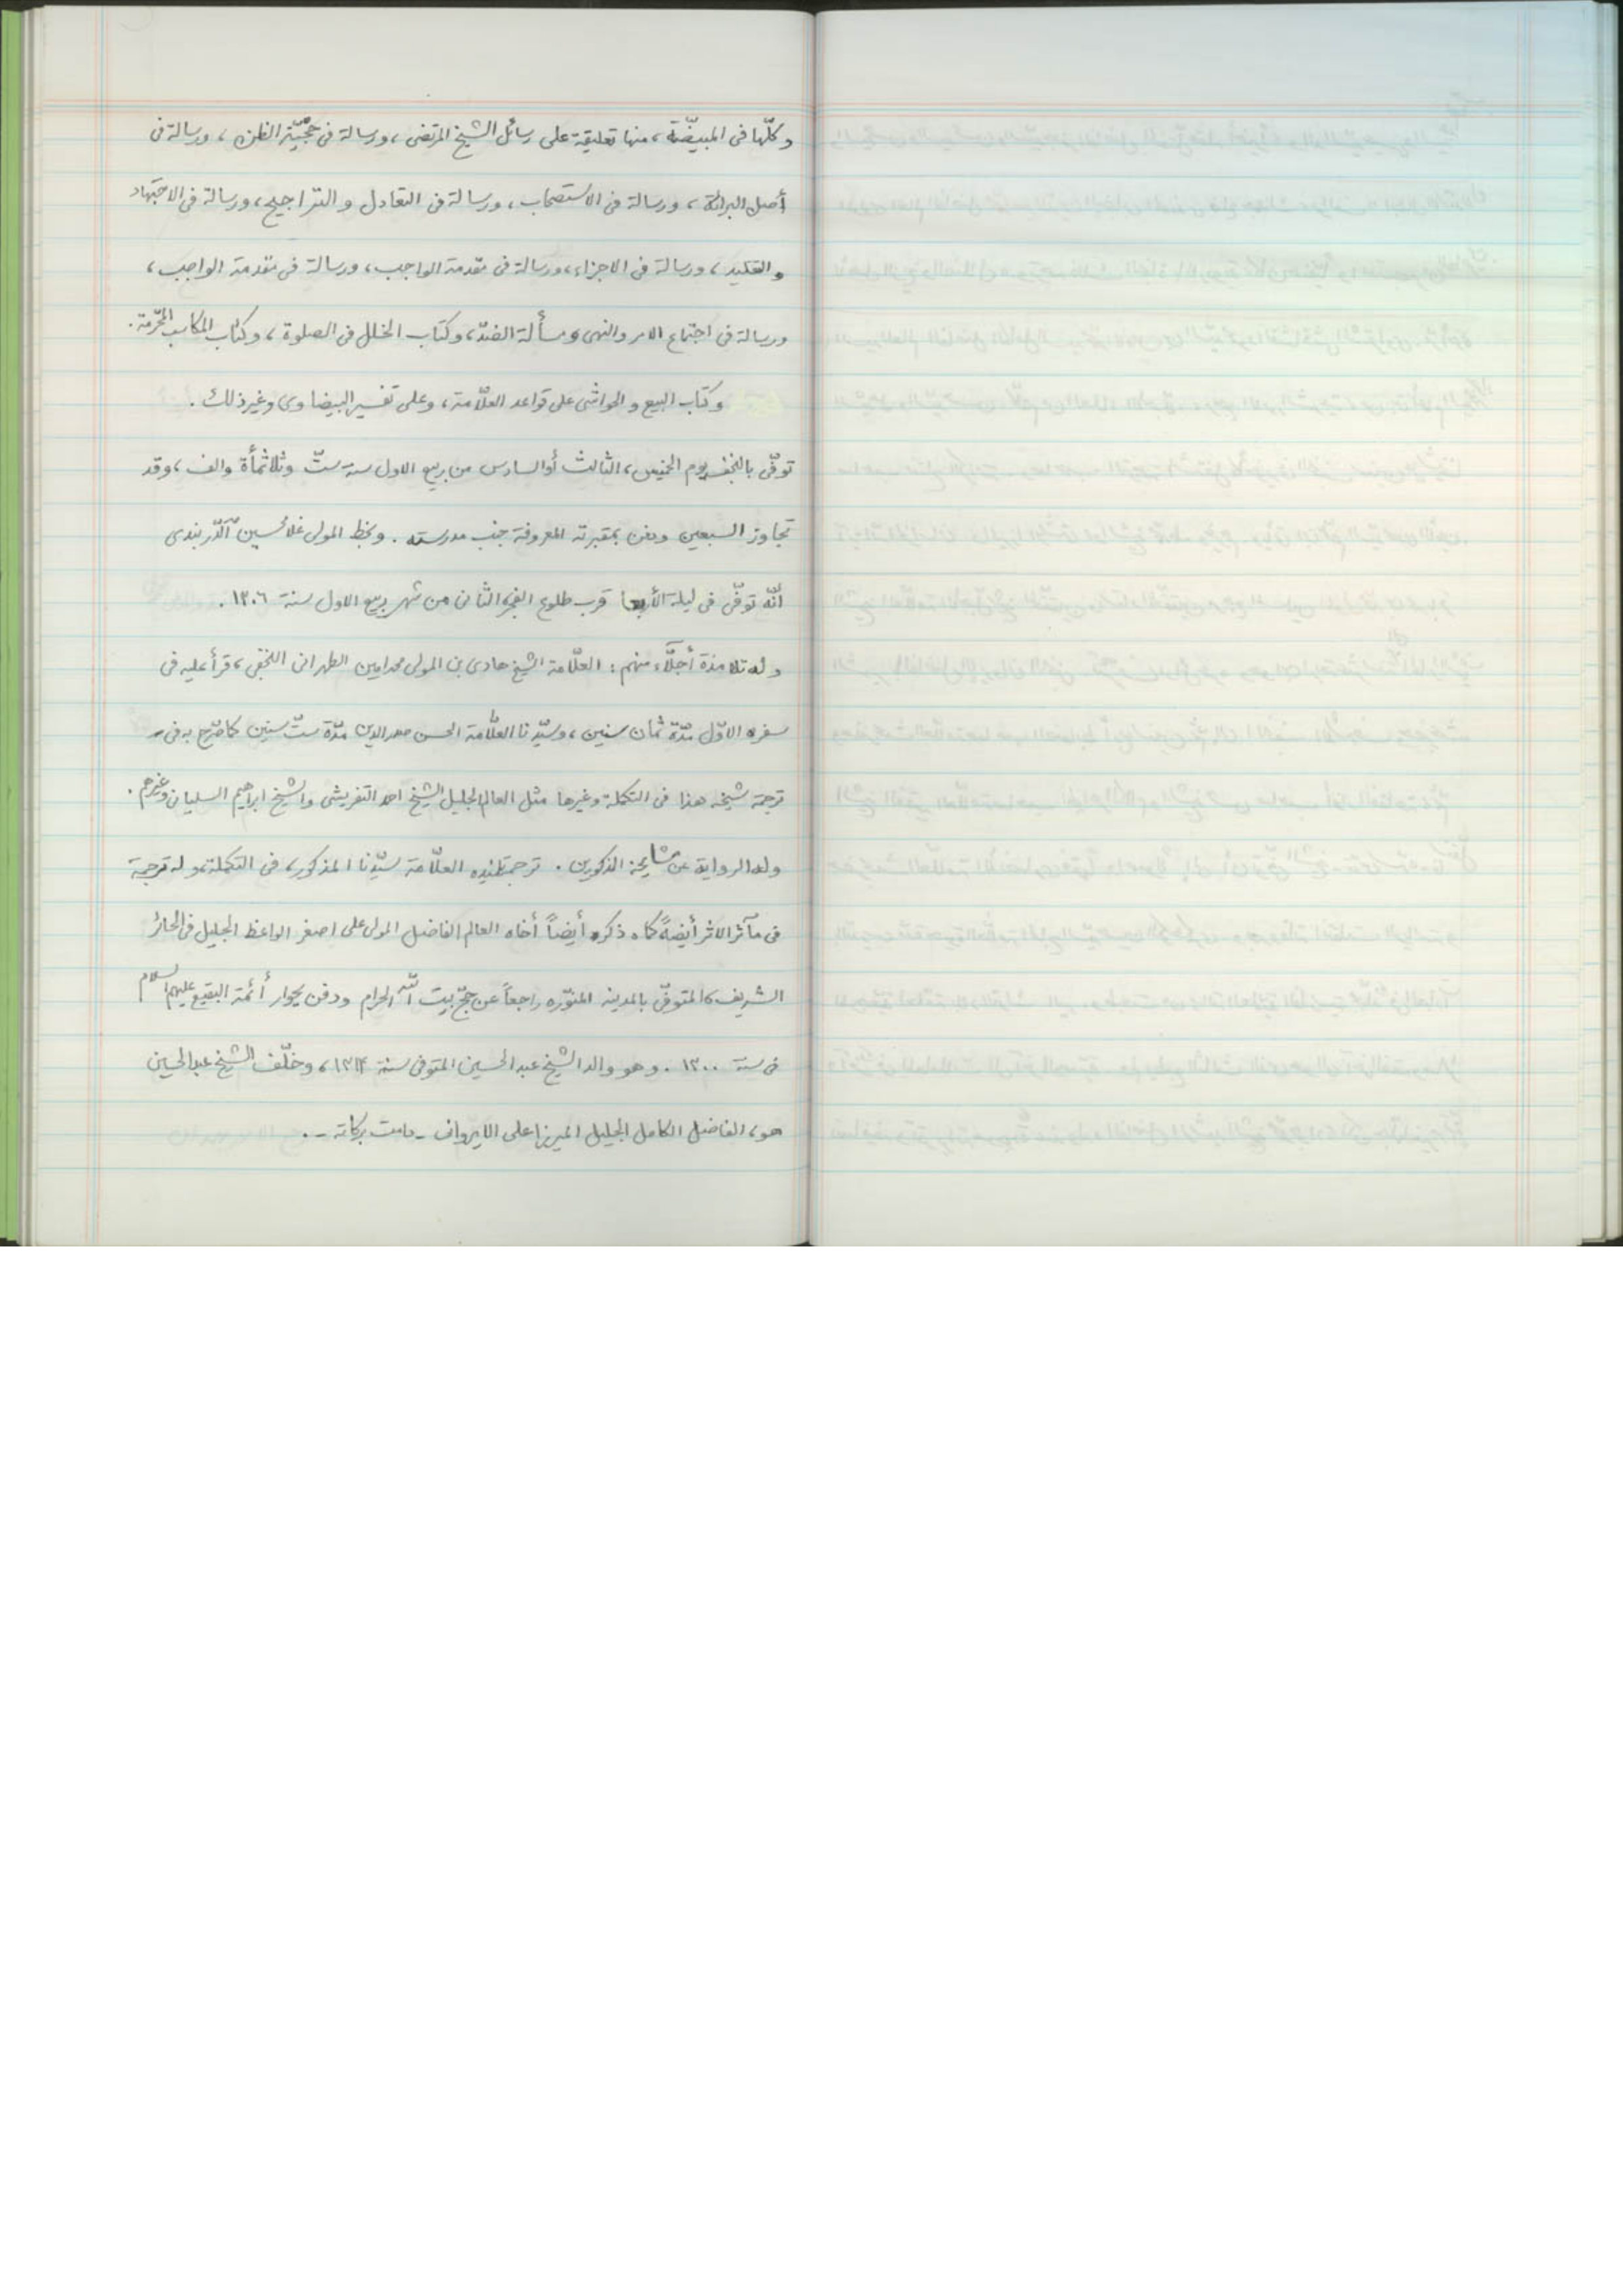 وكلّها فى المبيضّة، منها تعليقة على رسائل الشيخ المرتضى، ورسالة فى حجيّة الظن، ورسالة فى
أصل البرائة، ورسالة فى الاستصحاب، ورسالة فى التعادل و التراجيح، ورسالة فى الاجتهاد
والتقليد، ورسالة فى الاجزاء، ورسالة فى مقدمة الواجب، ورسالة فى مقدمة الواجب،
ورسالة فى اجتماع الامر والنهى ومسألة الضدّ، وكتاب الخلل فى الصلوة، وكتاب المكاسب المحرّمة.
وكتاب البيع و الحواشى على قواعد العلّامة، وعلى تفسير البيضاوى وغير ذلك.
توفّى بالنجف يوم الخميس، الثالث أو السادس من ربيع الاول سنة ستّ وثلاثمأة والف، وقد
تجاوز السبعين ودفن بمقبرته المعروفة جنب مدرسته. وبخط المولى غلامحسين الدربندى
أنّه توفّى فى ليلة الأربعا قرب طلوع الفجر الثانى من شهر ربيع الاول سنة ١٣٠٦.
وله تلامذة أجلّاء منهم: العلّامة الشيخ هادى بن المولى محمد امين الطهرانى النجفى، قرأ عليه فى
سفره الاوّل مدّة ثمان سنين، وسيّدنا العلّامة الحسن صدر الدين مدّة ستّ سنين كما صرّح به فى
ترجمة شيخه هذا فى التكملة وغيرها مثل العالم الجليل الشيخ احمد التفريشى والشيخ ابراهيم السليانى وغيرهم.
وله الرواية عن مشايخه المذكورين. ترجم تلميذه العلّامة سيّدنا المذكور، فى التكملة، وله ترجمة
فى مآثر الاثر أيضاً كما ذكره أيضاً أخاه العالم الفاضل المولى على اصغر الواعظ الجليل فى الحائر
الشريف، المتوفّى بالمدينه المنوّره راجعاً عن حجّ بيت اللّه الحرام ودفن بجوار أئمة البقيع عليهم السلام
فى سنة ١٣٠٠. وهو والد الشيخ عبد الحسين المتوفى سنة ١٣١٤، وخلّف الشيخ عبد الحسين
هو، الفاضل الكامل الجليل الميرزا على الايروانى - دامت بركاته -.